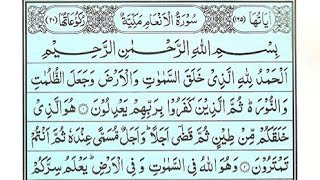 اٰیَاتُهَا (۱۶۵) سُوْرَةُ الْاَنْعَامِ مَكِّیَّةٌ رُكُوْعَاتُهَا (۲۰)
بِسْمِ اللّٰهِ الرَّحْمٰنِ الرَّحِیْمِ
اَلْحَمْدُ لِلّٰهِ الَّذِیْ خَلَقَ السَّمٰوٰتِ وَالْاَرْضَ وَجَعَلَ الظُّلُمٰتِ
وَالنُّوْرَ ۬ؕ ثُمَّ الَّذِیْنَ كَفَرُوْا بِرَبِّهِمْ یَعْدِلُوْنَ ۝۱ هُوَ الَّذِیْ
خَلَقَكُمْ مِّنْ طِیْنٍ ثُمَّ قَضٰۤی اَجَلًا ؕ وَاَجَلٌ مُّسَمًّی عِنْدَهٗ ثُمَّ اَنْتُمْ
تَمْتَرُوْنَ ۝۲ وَهُوَ اللّٰهُ فِی السَّمٰوٰتِ وَفِی الْاَرْضِ ؕ یَعْلَمُ سِرَّكُمْ